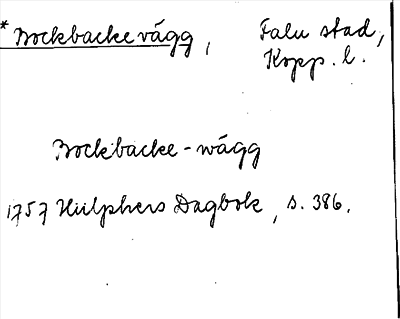 * Bockbacke vägg, Falu stad,
Kopp. l.
Bockbacke-wägg
1757 Hülphers Dagbok, s. 386.